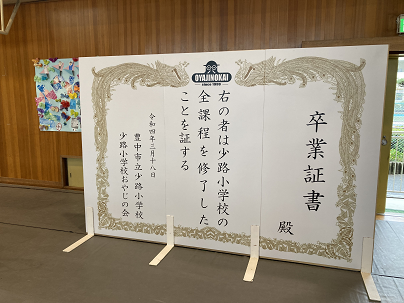 OYAJINOKAI
卒業証書
殿
右の者は少路小学校の
全課程を修了した
ことを証する
令和四年三月十八日
豊中市立少路小学校
少路小学校おやじの会